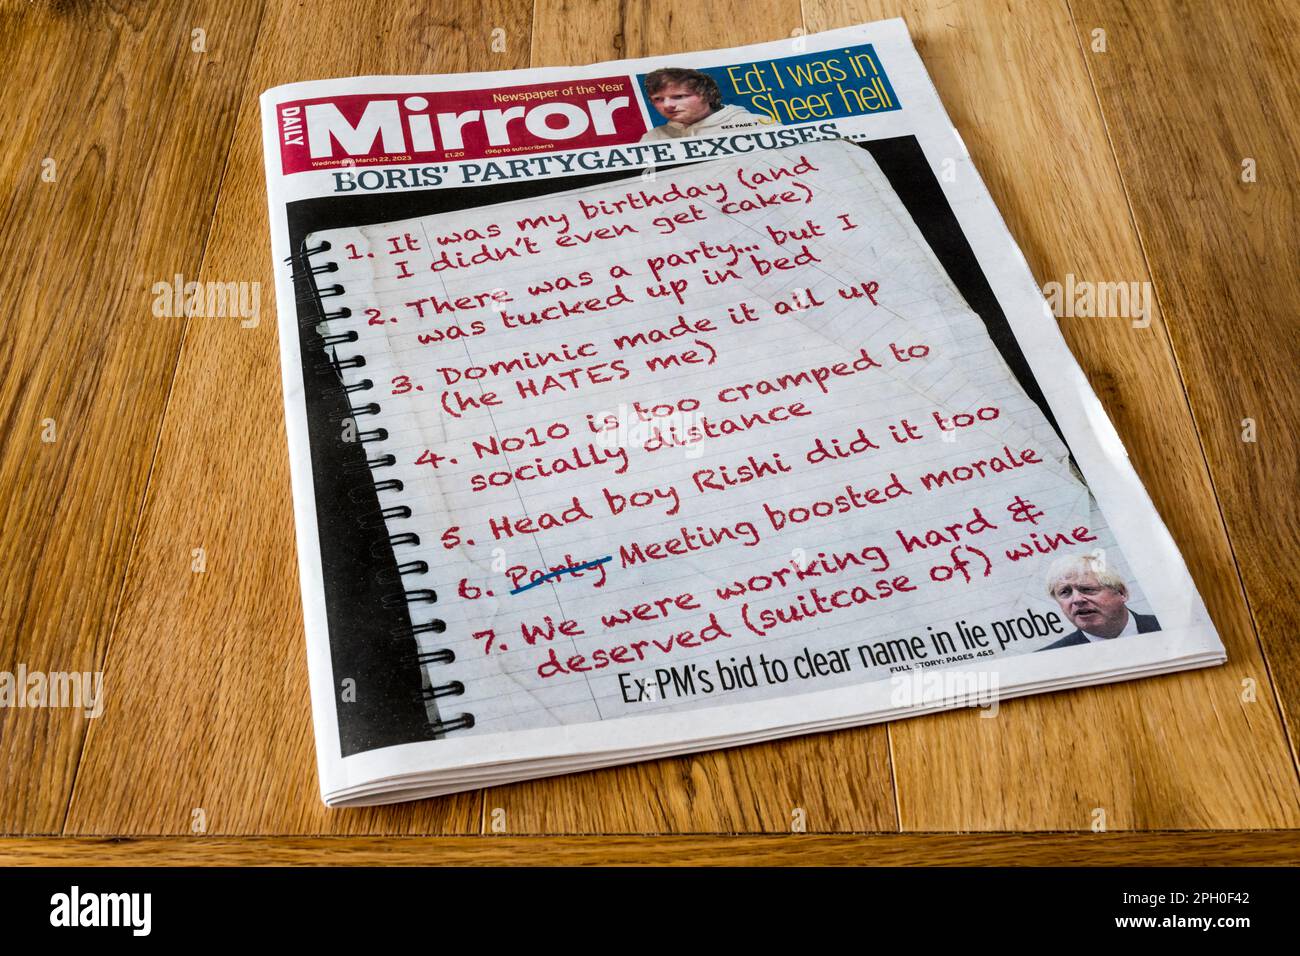 DAILY
Mirror
Newspaper of the Year
Wednesday, March 22, 2023 £1.20 (96p to subscribers)
Ed: I was in
Sheer hell
SEE PAGE 7
BORIS' PARTYGATE EXCUSES...
1. It was my birthday (and
I didn't even get cake)
2. There was a party... but I
was tucked up in bed
3. Dominic made it all up
(he HATES me)
4. No10 is too cramped to
socially distance
5. Head boy Rishi did it too
6. Party Meeting boosted morale
7. We were working hard &
deserved (suitcase of) wine
Ex-PM's bid to clear name in lie probe
FULL STORY: PAGES 4&5
alamy
alamy
Image ID: 2PH0F42
www.alamy.com